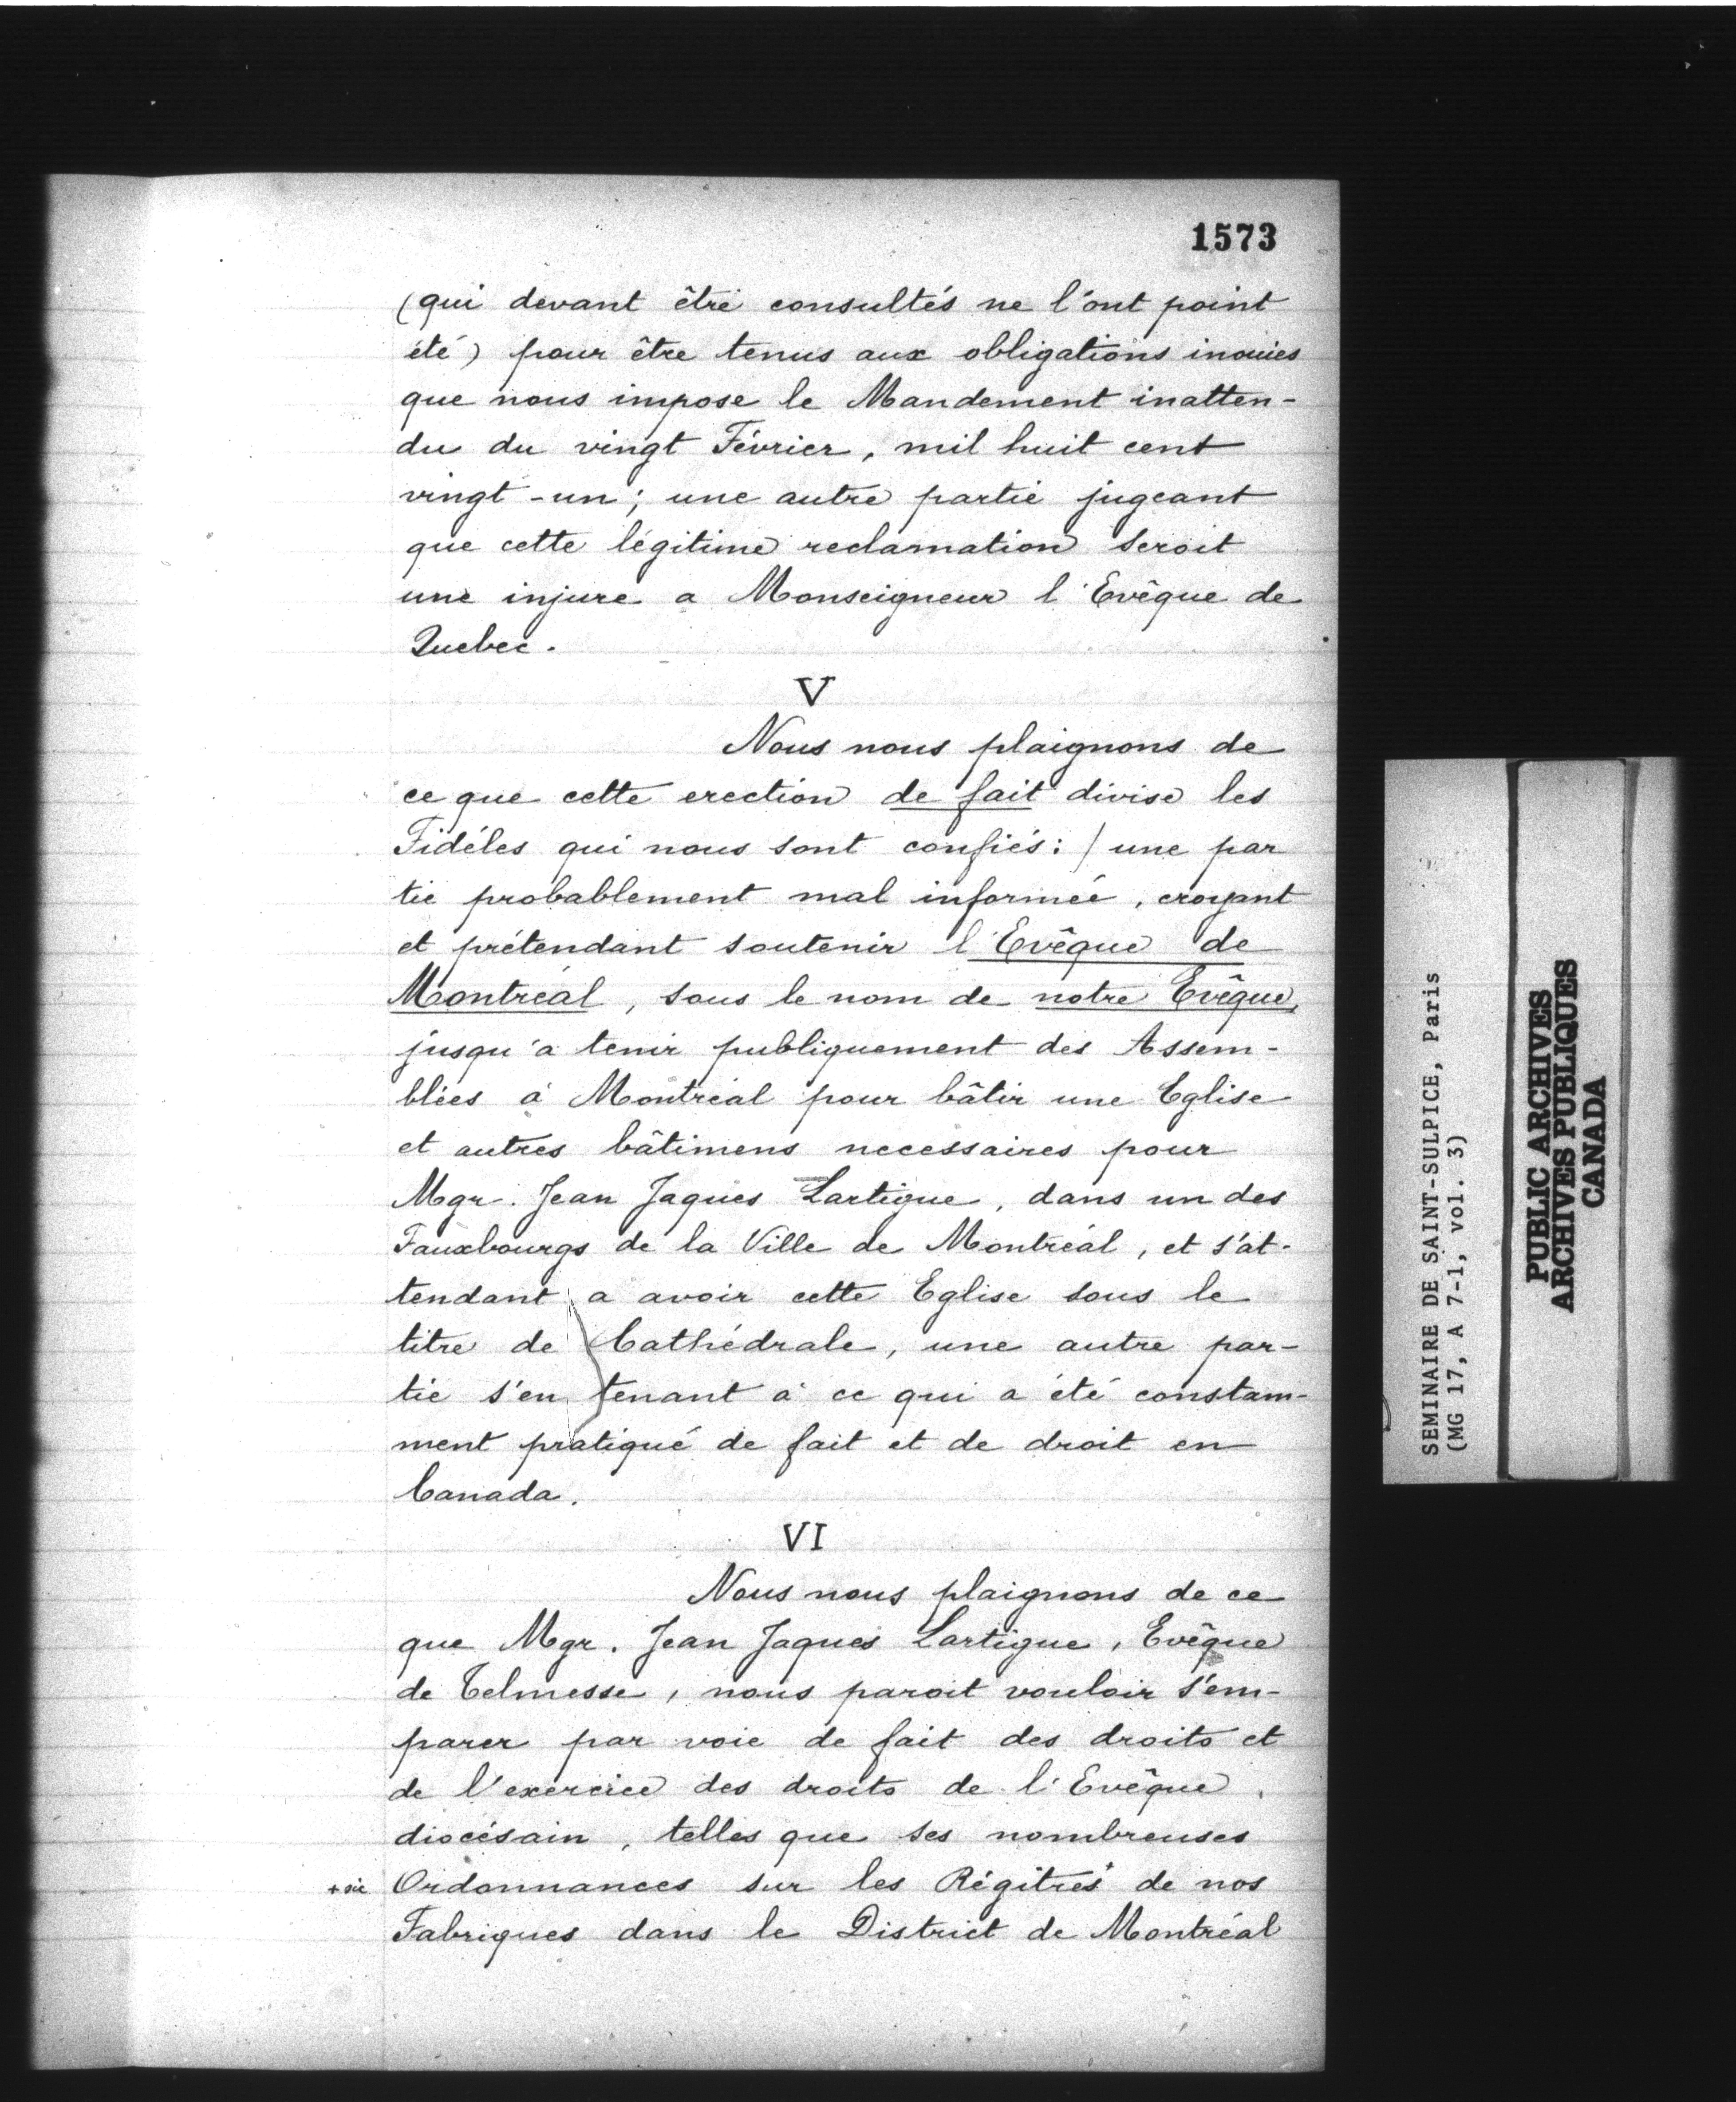 1573
(qui devant être consultés ne l'ont point
été) pour être tenus aux obligations inouies
que nous impose le Mandement inatten-
du du vingt Février, mil huit cent
vingt-un; une autre partie jugeant
que cette légitime reclamation seroit
une injure a Monseigneur l'Evêque de
Quebec.
V
Nous nous plaignons de
ce que cette erection de fait divise les
Fidéles qui nous sont confiés: / une par
tie probablement mal informée, croyant
et prétendant soutenir l'Evêque de
Montréal, sous le nom de notre Evêque,
jusqu'a tenir publiquement des Assem-
blées à Montréal pour bâtir une Eglise
et autres bâtimens necessaires pour
Mgr. Jean Jaques Lartigue, dans un des
Fauxbourgs de la Ville de Montréal, et s'at-
tendant a avoir cette Eglise sous le
titre de Cathédrale, une autre par-
tie s'en tenant à ce qui a été constam-
ment pratiqué de fait et de droit en
Canada.
VI
Nous nous plaignons de ce
que Mgr. Jean Jaques Lartigue, Evêque
de Telmesse, nous paroit vouloir s'em-
parer par voie de fait des droits et
de l'exercice des droits de l'Evêque
diocésain, telles que ses nombreuses
+ sic Ordonnances sur les Régitres+ de nos
Fabriques dans le District de Montréal
SEMINAIRE DE SAINT-SULPICE, Paris
(MG 17, A 7-1, vol. 3)
PUBLIC ARCHIVES
ARCHIVES PUBLIQUES
CANADA